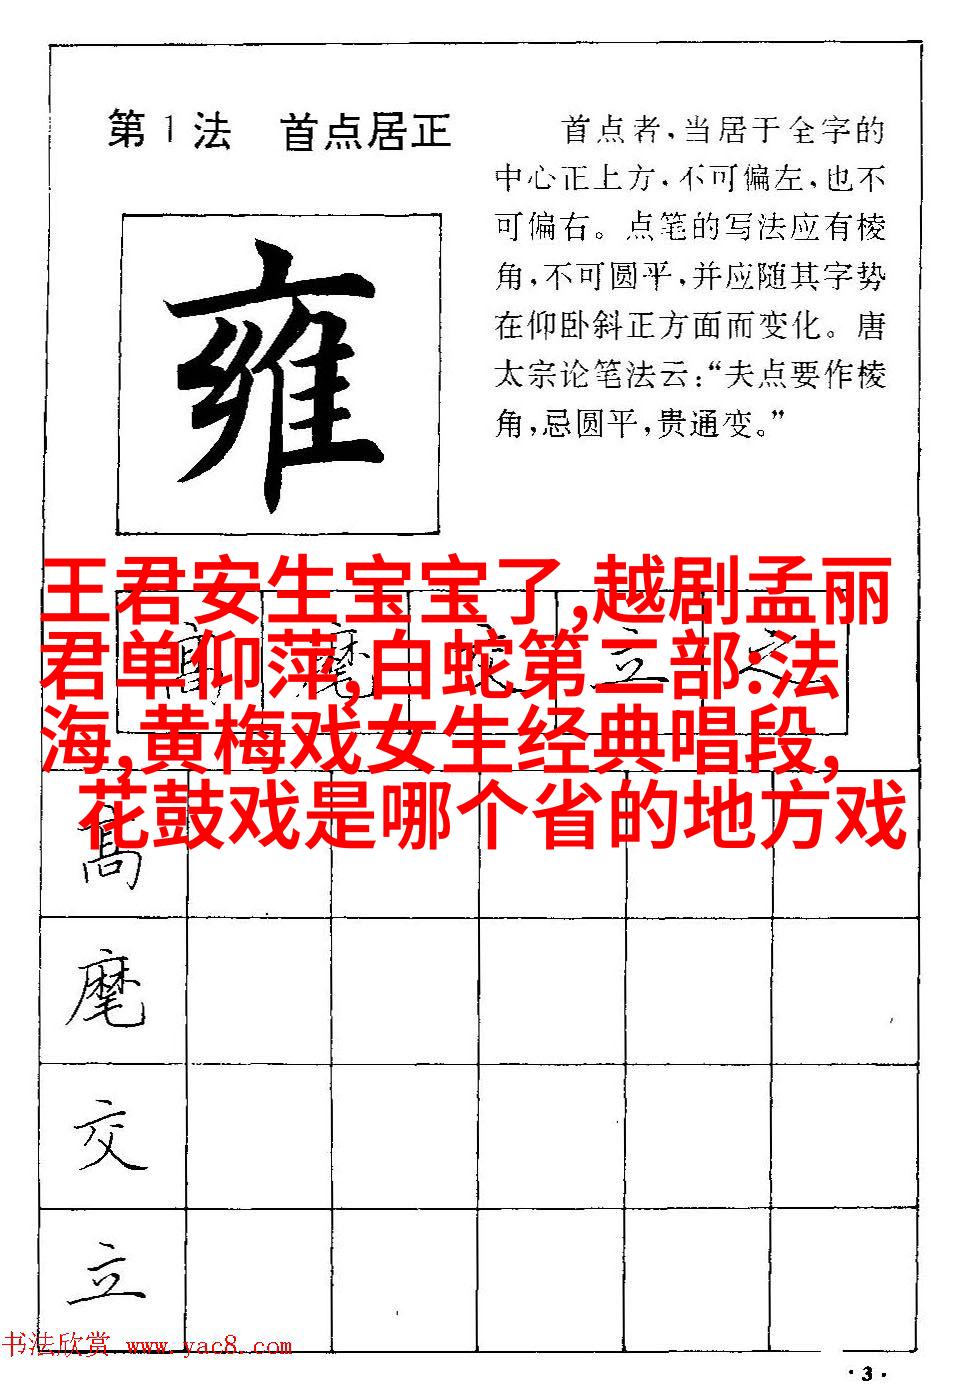 第1法 首点居正
首点者，当居于全字的
中心正上方，不可偏左，也不
可偏右。点笔的写法应有棱
角，不可圆平，并应随其字势
在仰卧斜正方面而变化。唐
太宗论笔法云：“夫点要作棱
角，忌圆平，贵通变。”
雍
王君安生宝宝了,越剧孟丽
君单仰萍,白蛇第二部:法
海,黄梅戏女生经典唱段,
花鼓戏是哪个省的地方戏
高 麾 交 立 之
高
麾
交
立
书法欣赏 www.yac8.com
·3·